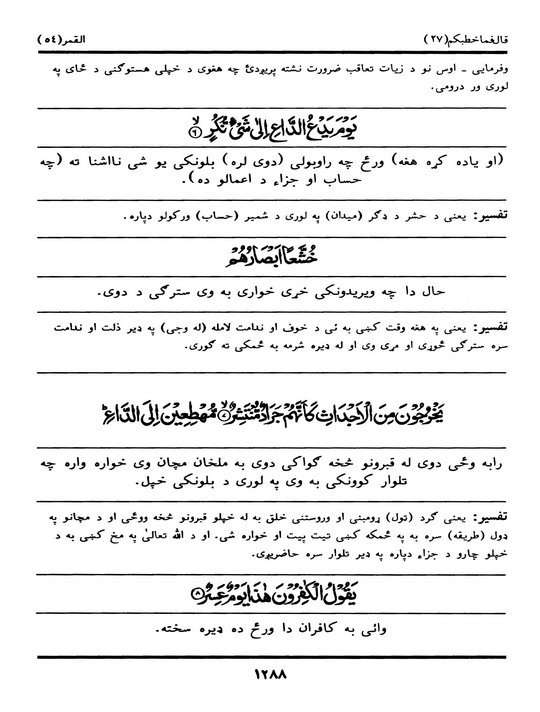 قال فما خطبكم (٢٧)
القمر (٥٤)
وفرمایی ـ اوس نو د زیات تعاقب ضرورت نشته پریږدئ چه هغوی د خپلی هستوګنی د ځای په
لوری ور درومی.
يَوْمَ يَدْعُ الدَّاعِ إِلَىٰ شَيْءٍ نُّكُرٍ ۙ ﴿٦﴾
(او یاده کړه هغه) ورځ چه راوبولی (دوی لره) بلونکی یو شی نااشنا ته (چه
حساب او جزاء د اعمالو ده).
تفسیر: یعنی د حشر د ډګر (میدان) په لوری د شمیر (حساب) ورکولو دپاره.
خُشَّعًا أَبْصَارُهُمْ
حال دا چه ویریدونکی خړی خواری به وی سترګی د دوی.
تفسیر: یعنی په هغه وقت کښی به ئی د خوف او ندامت لامله (له وجی) په ډیر ذلت او ندامت
سره سترګی ځوړی او مړی وی او له ډیره شرمه به ځمکی ته ګوری.
يَخْرُجُونَ مِنَ الْأَجْدَاثِ كَأَنَّهُمْ جَرَادٌ مُّنتَشِرٌ ۙ ﴿٧﴾ مُّهْطِعِينَ إِلَى الدَّاعِ ۖ
رابه وځی دوی له قبرونو څخه ګواکی دوی به ملخان مچان وی خواره واره چه
تلوار کوونکی به وی په لوری د بلونکی خپل.
تفسیر: یعنی ګرد (ټول) ړومبنی او وروستنی خلق به له خپلو قبرونو څخه ووځی او د مچانو په
ډول (طریقه) سره به په ځمکه کښی تیت پیت او خواره شی. او د الله تعالیٰ په مخ کښی به د
خپلو چارو د جزاء دپاره په ډیر تلوار سره حاضریږی.
يَقُولُ الْكَافِرُونَ هَٰذَا يَوْمٌ عَسِرٌ ﴿٨﴾
وائی به کافران دا ورځ ده ډیره سخته.
١٢٨٨